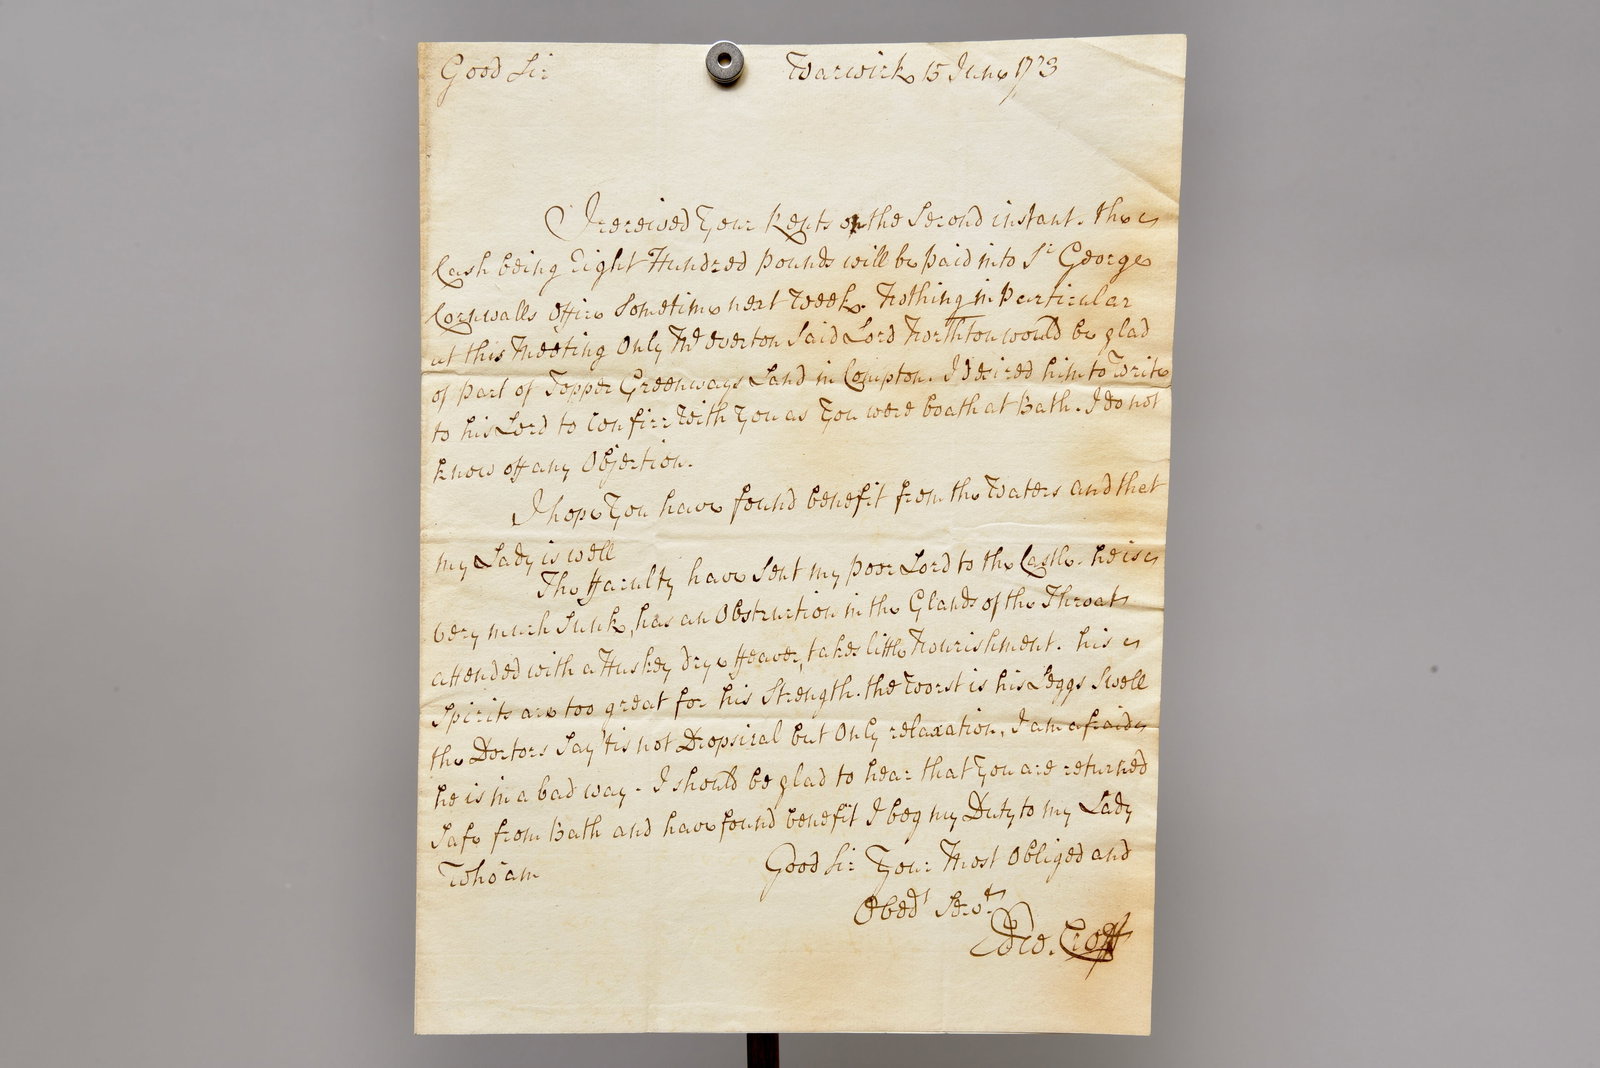 Good Sir
Warwick 15 June 1773
I received Your Rents on the Second instant. the
Cash being Eight Hundred pounds will be paid into Sr. George
Cornwalls office Sometime next Week. Nothing in Particular
at this Meeting Only Mr. Overton Said Lord Northton would be glad
of part of Topper Greenways Land in Compton. I desired him to Write
to his Lord to Confirr With You as You were boath at Bath. I do not
know off any Objection.
I hope You have found benefit from the Waters and that
my Lady is well
The ffaculty have Sent my poor Lord to the Castle. he is
very much Sunk, has an Obstruction in the Glands of the Throat
attended with a Huskey dry Heaver, takes little Nourishment. his
Spirits are too great for his Strength. the Worst is his Leggs Swell
the Doctors Say 'tis not Dropsical but Only relaxation, I am afraid
he is in a bad way - I should be glad to hear that You are returned
Safe from Bath and have found benefit I beg my Duty to my Lady
Who am
Good Sir Your Most Obliged and
Obedt Servt.
Edwd. Croft